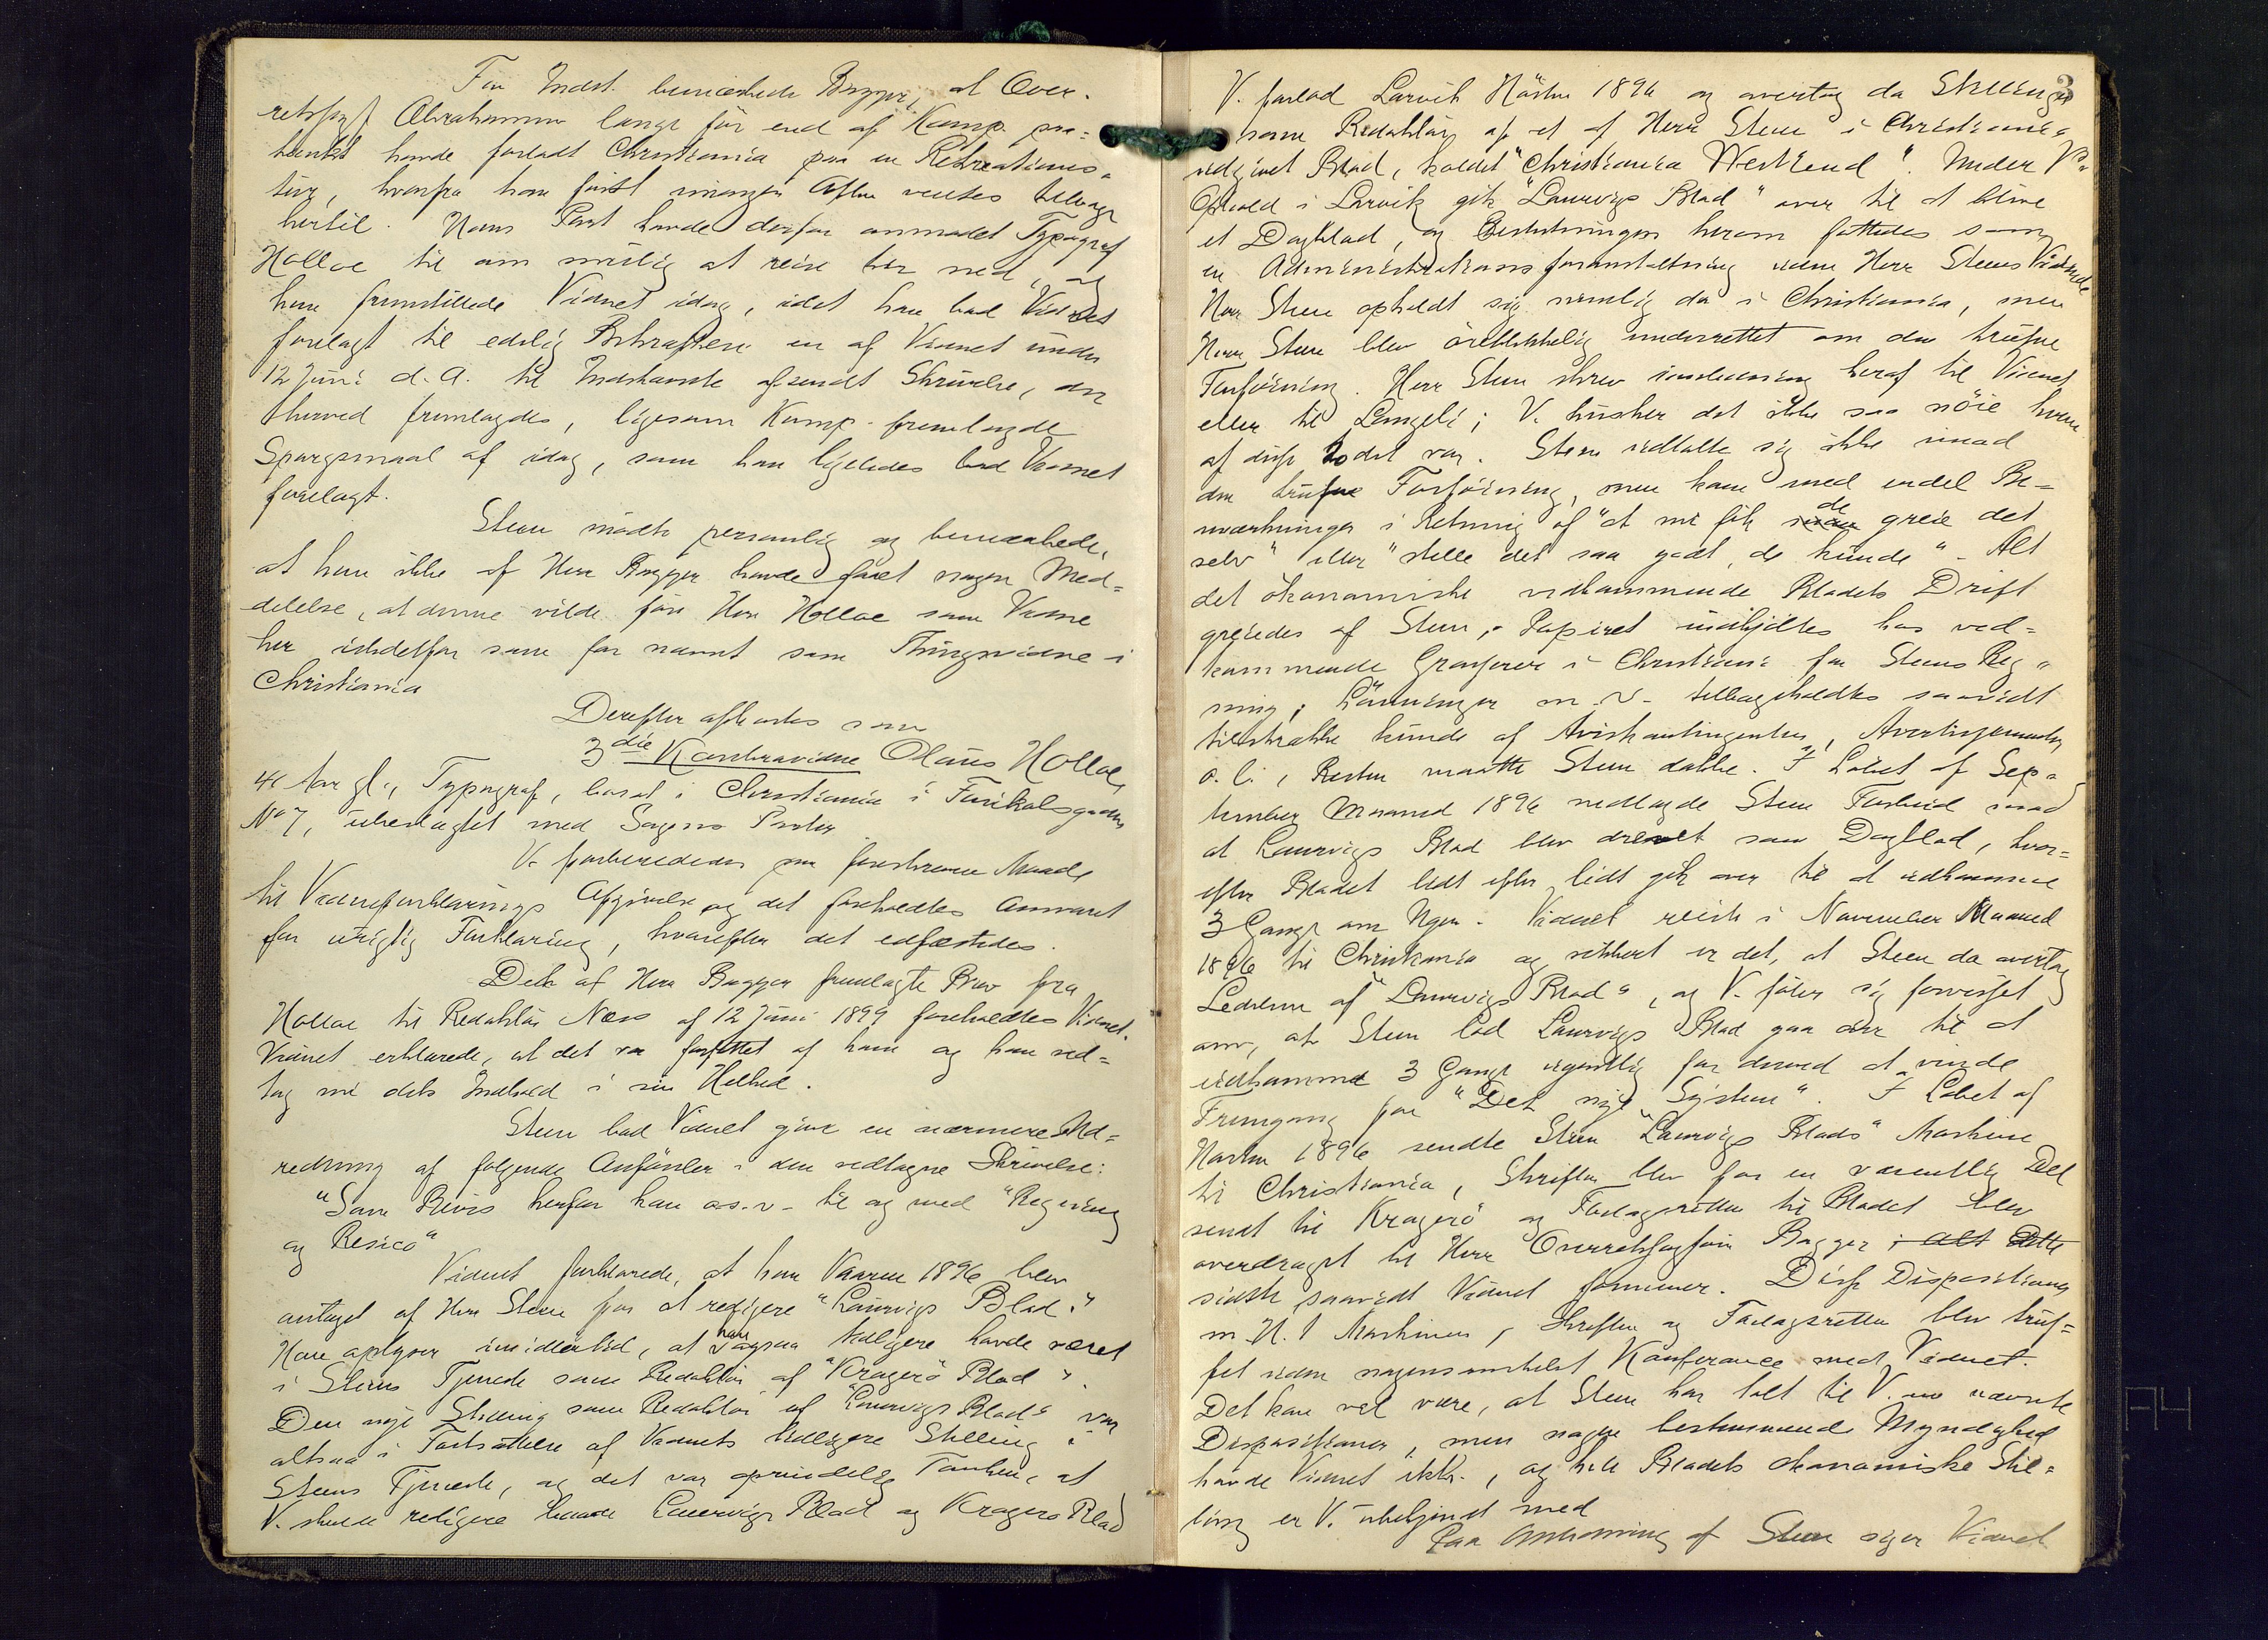 For Indst. bemærkede Bryger, at Over-
retssagf Abrahamsen længe før end af Kamp. paa-
tænkt havde forladt Christiania paa en Rekreations-
tur, hvorfra han først imorgen Aften ventes tilbage
hertil. Hans Part havde derfor anmodet Typograf
Holloe til om mulig at reise her ned, og
han fremstillede Vidnet idag, idet han bad Vidnet
forelagt til edelig Bekræftelse en af Vidnet under
12 Juni d. A. til Indstævnte afsendt Skrivelse, der
herved fremlagdes, ligesom Kamp. fremlagde
Spørgsmaal af idag, som han ligeledes bad Vidnet
forelagt.
Steen mødte personlig og bemærkede,
at han ikke af Herr Brygger havde faaet nogen Med-
delelse, at denne vilde føre Herr Holloe som Vidne
her istedetfor som før nævnt som Thingsvidne i
Christiania
Derefter afhørtes som
3die Kontravidne Olaus Holloe,
41 Aar gl., Typograf, bosat i Christiania i Turikalsgaden
No 7, ubeslægtet med Sagens Parter.
V. forberededes paa foreskreven Maade
til Vidneforklarings Afgivelse og det foreholdtes Ansvaret
for urigtig Forklaring, hvorefter det edfæstedes.
Det af Herr Brygger fremlagte Brev fra
Holloe til Redaktør Næss af 12 Juni 1899 foreholdtes Vidnet.
Vidnet erklærede, at det var forfattet af ham og han ved-
tog nu dets Indhold i sin Helhed.
Steen bad Vidnet give en nærmere Ud-
redning af følgende Anførsler i den vedtagne Skrivelse:
"Som Bevis herfor kan o.s.v. til og med "Regning
og Resico"
Vidnet forklarede, at han Vaaren 1896 blev
antaget af Herr Steen for at redigere "Laurvigs Blad".
Han oplyser imidlertid, at han ogsaa tidligere havde været
i Steens Tjeneste som Redaktør af "Kragerö Blad".
Den nye Stilling som Redaktør af "Laurvigs Blad" var
altsaa i Fortsættelse af Vidnets tidligere Stilling i
Steens Tjeneste, og det var oprindelig Tanken, at
V. skulde redigere baade Laurvigs Blad og Kragerø Blad
3
V. forlod Larvik Høsten 1896 og overtog da Stillingen
som Redaktør af et af Herr Steen i Christiania
udgivet Blad, kaldet "Christiania Westkend". Under V's
Ophold i Larvik gik "Laurvigs Blad" over til at blive
et Dagblad, og Beslutningen herom fattedes som
en Administrationsforanstaltning uden Herr Steens Vidende
Herr Steen opholdt sig nemlig da i Christiania, men
Herr Steen blev øieblikkelig underrettet om den trufne
Forføining. Herr Steen skrev i anledning heraf til Vidnet
eller til Langeli; V. husker det ikke saa nöie hvem
af disse to det var. Steen udtalte sig ikke imod
den trufne Forføining, men kom med endel Be-
mærkninger i Retning af "at vi fik de greie det
selv" eller "stelle det saa godt de kunde". Alt
det økonomiske vedkommende Bladets Drift
greiedes af Steen, Papiret indkjøbtes hos ved-
kommende Grosserer i Christiania for Steens Reg-
ning; Lønninger m.v. tilbageholdtes saavidt
tilstrække kunde af Aviskontingenten, Avertissementer
o. l., Resten maatte Steen dække. I Løbet af Sep-
tember Maaned 1896 nedlagde Steen Forbud mod
at Laurvigs Blad blev drevet som Dagblad, hvor-
efter Bladet lidt efter lidt gik over til at udkomme
3 Gange om Ugen. Vidnet reiste i November Maaned
1896 til Christiania og sikkert er det, at Steen da overtog
Ledelsen af "Laurvigs Blad", og V. føler sig forvisset
om, at Steen lod Laurvigs Blad gaa over til at
udkomme 3 Gange ugentlig for derved at vinde
Fremgang for "Det nye System". I Løbet af
Høsten 1896 sendte Steen "Laurvigs Blads" Maskine
til Christiania, Skriften blev for en væsentlig Del
sendt til Kragerö og Forlagsretten til Bladet blev
overdraget til Herr Overretssagfører Brygger; alt dette
sidste saavidt Vidnet formener. Disse Dispositioner
m. H. t. Maskinen, Skriften og Forlagsretten blev truf-
fet uden nogensomhelst Konferance med Vidnet.
Det kan vel være, at Steen har talt til V. om nævnte
Dispositioner, men nogen bestemmende Myndighed
havde Vidnet ikke, og hele Bladets økonomiske Stil-
ling er V. ubekjendt med
Paa Anledning af Steen siger Vidnet